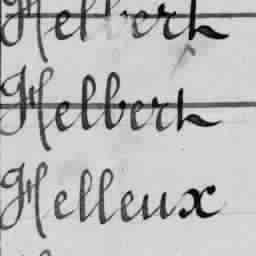 Helbert
Helbert
Helleux